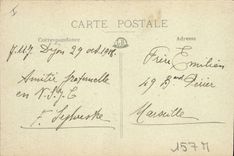 CARTE POSTALE
Correspondance
Adresse
Dijon 29 oct.
Amitié fraternelle
en N.S.J.C
F.
Frère Emilien
49 Bard
Marseille
1577